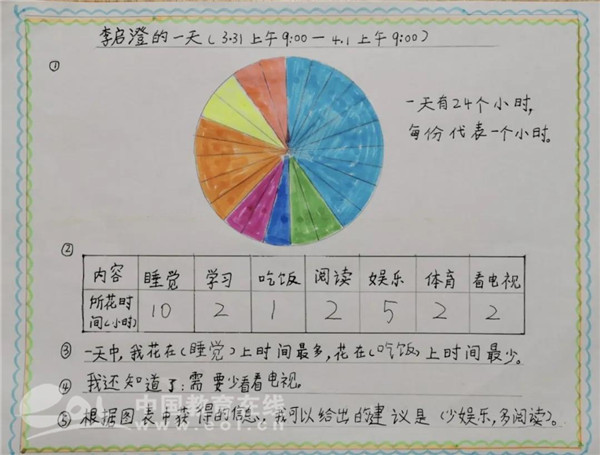 李启澄的一天(3.31上午9:00—4.1上午9:00)
①
一天有24个小时,
每份代表一个小时。
②
内容 睡觉 学习 吃饭 阅读 娱乐 体育 看电视
所花时间(小时) 10 2 1 2 5 2 2
③ 一天中,我花在(睡觉)上时间最多,花在(吃饭)上时间最少。
④ 我还知道了:需要少看看电视。
⑤ 根据图表中获得的信息,我可以给出的建议是(少娱乐,多阅读)。
中国教育在线
eol.cn